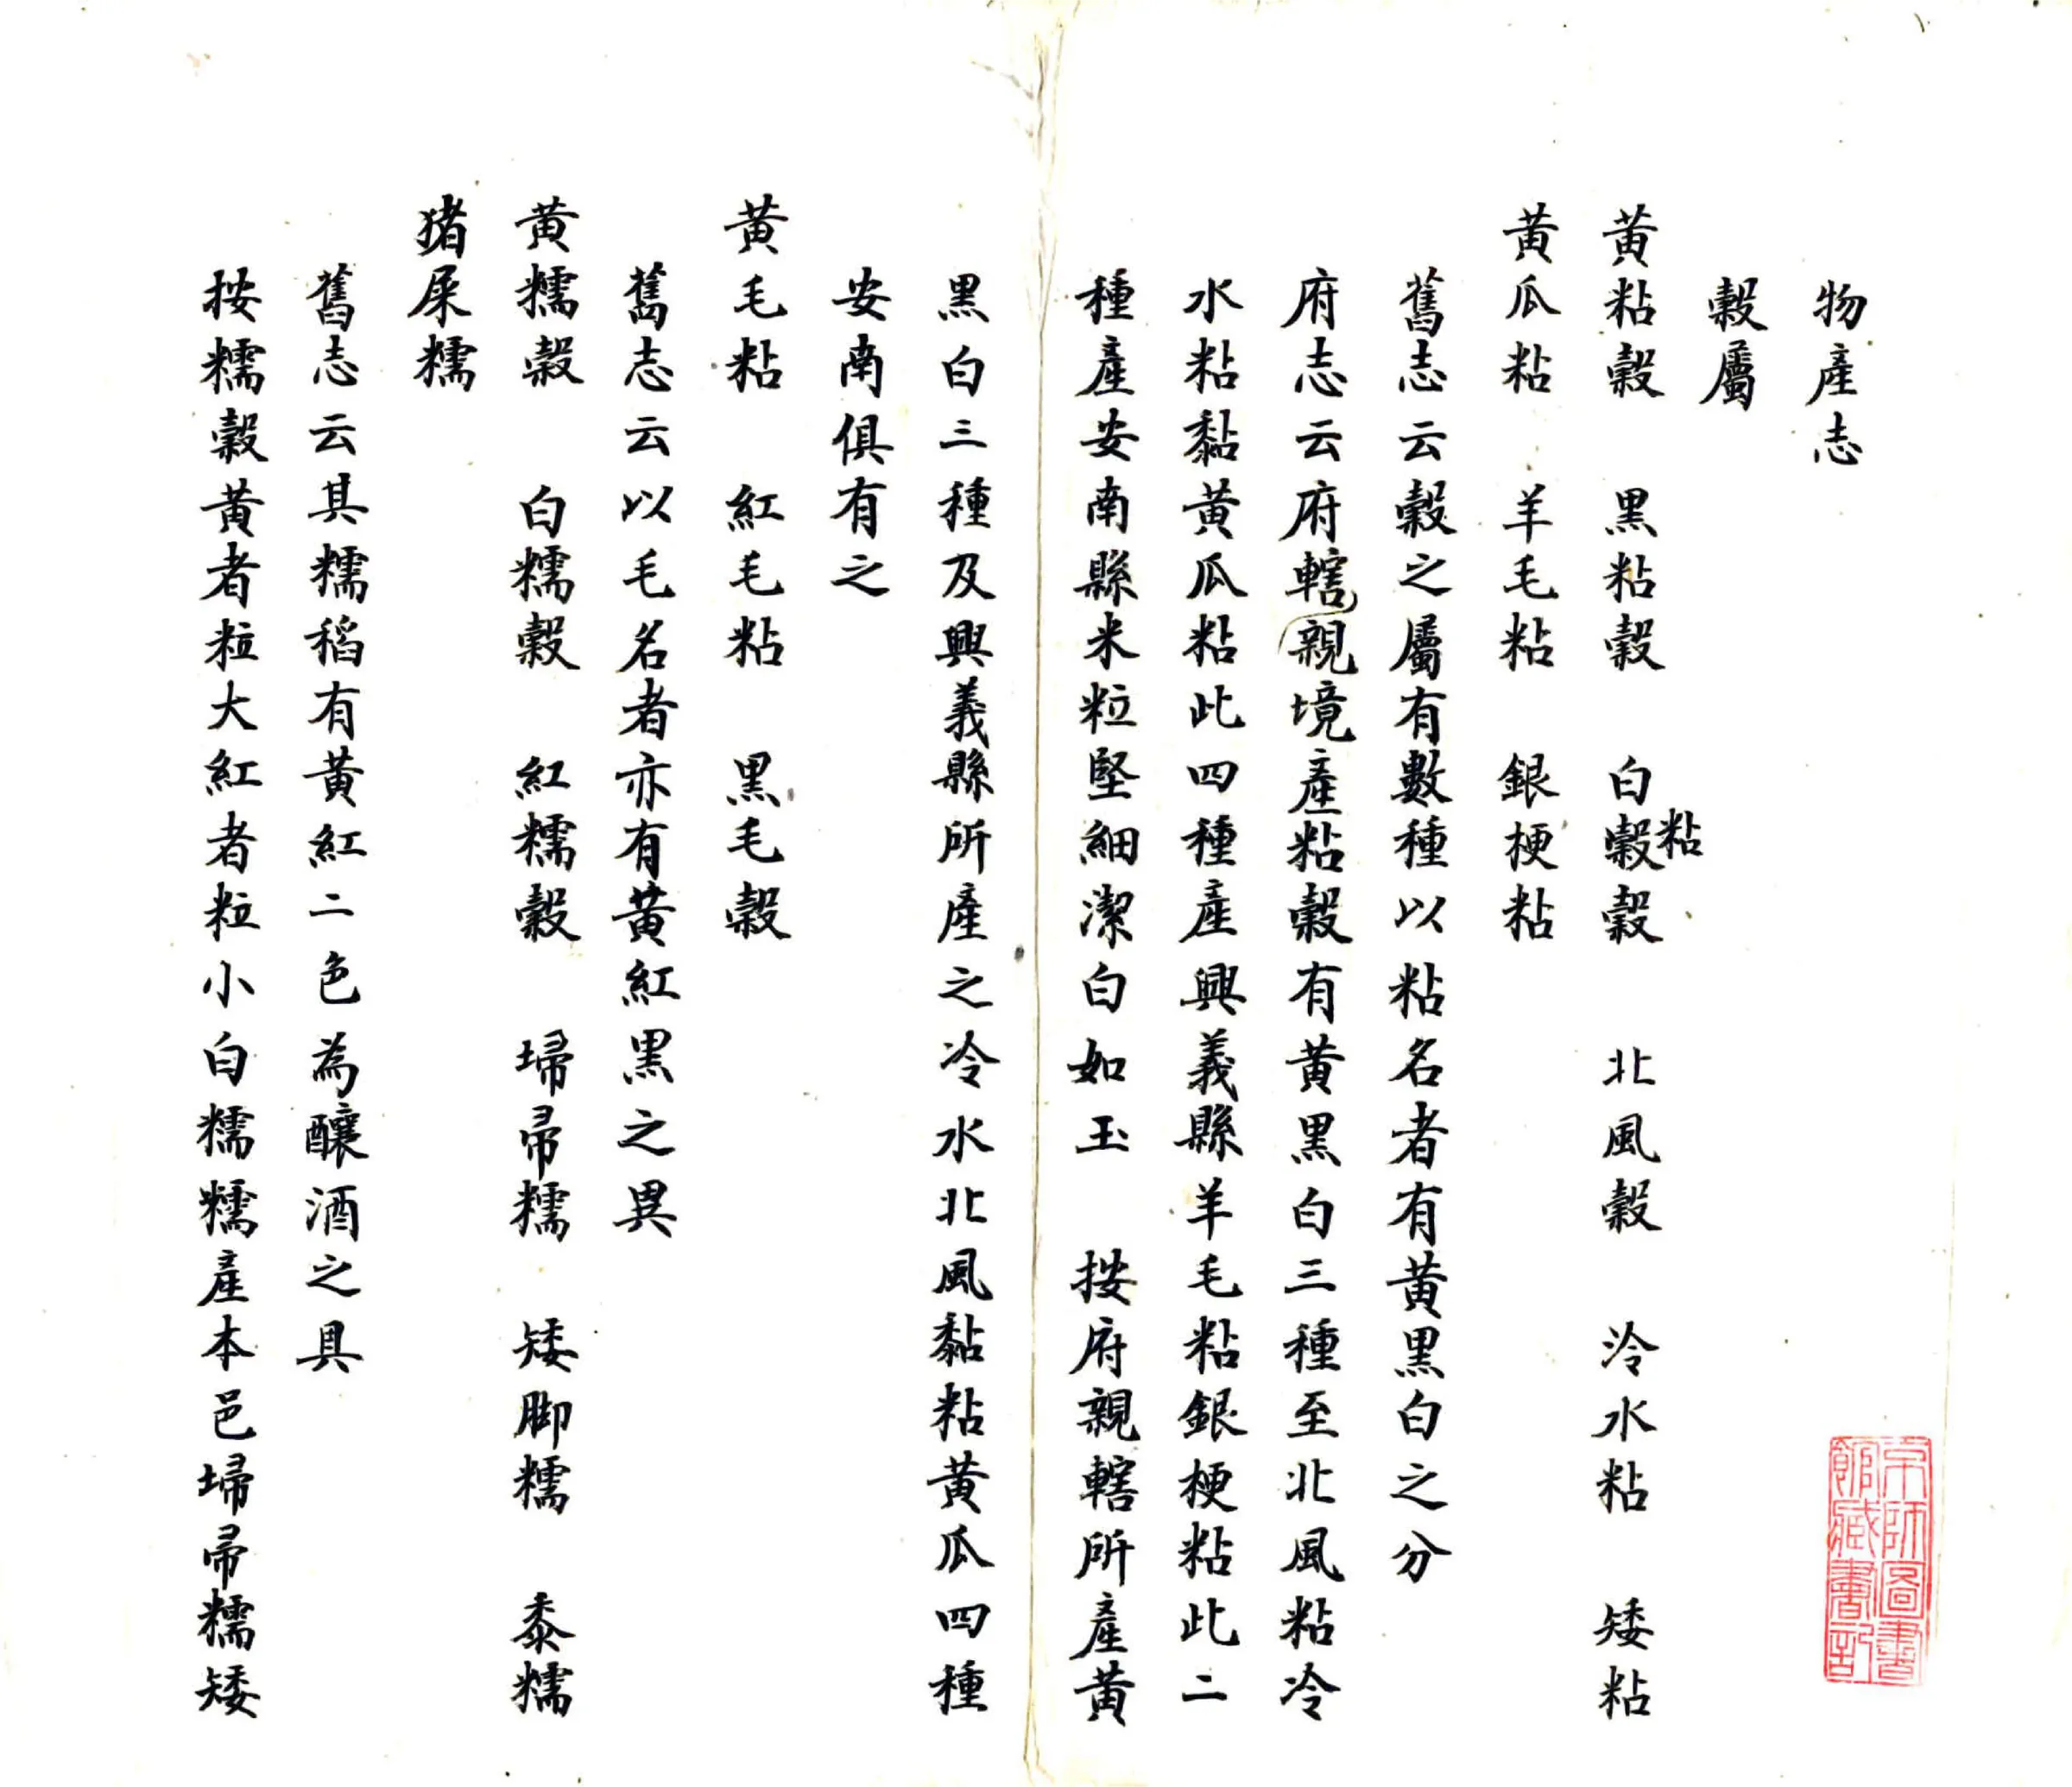 物產志
穀屬
黃粘穀　黑粘穀　白穀粘穀　北風穀　冷水粘　矮粘
黃瓜粘　羊毛粘　銀梗粘
舊志云穀之屬有數種以粘名者有黃黑白之分
府志云府轄親境產粘穀有黃黑白三種至北風粘冷
水粘黏黃瓜粘此四種產興義縣羊毛粘銀梗粘此二
種產安南縣米粒堅細潔白如玉　按府親轄所產黃
黑白三種及興義縣所產之冷水北風黏粘黃瓜四種
安南俱有之
黃毛粘　紅毛粘　黑毛穀
舊志云以毛名者亦有黃紅黑之異
黃糯穀　白糯穀　紅糯穀　埽帚糯　矮脚糯　黍糯
猪屎糯
舊志云其糯稻有黃紅二色為釀酒之具
按糯穀黃者粒大紅者粒小白糯糯產本邑埽帚糯矮
京師圖書
館藏書記